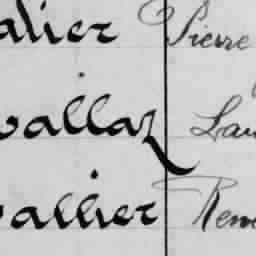 alier Pierre
vallaz Lau
vallier René